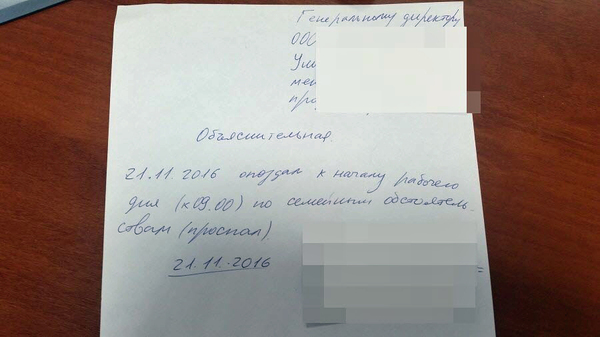 Генеральному директору
ООО
Объяснительная.
21.11.2016 опоздал к началу рабочего
дня (к 09.00) по семейным обстоятель-
ствам (проспал).
21.11.2016